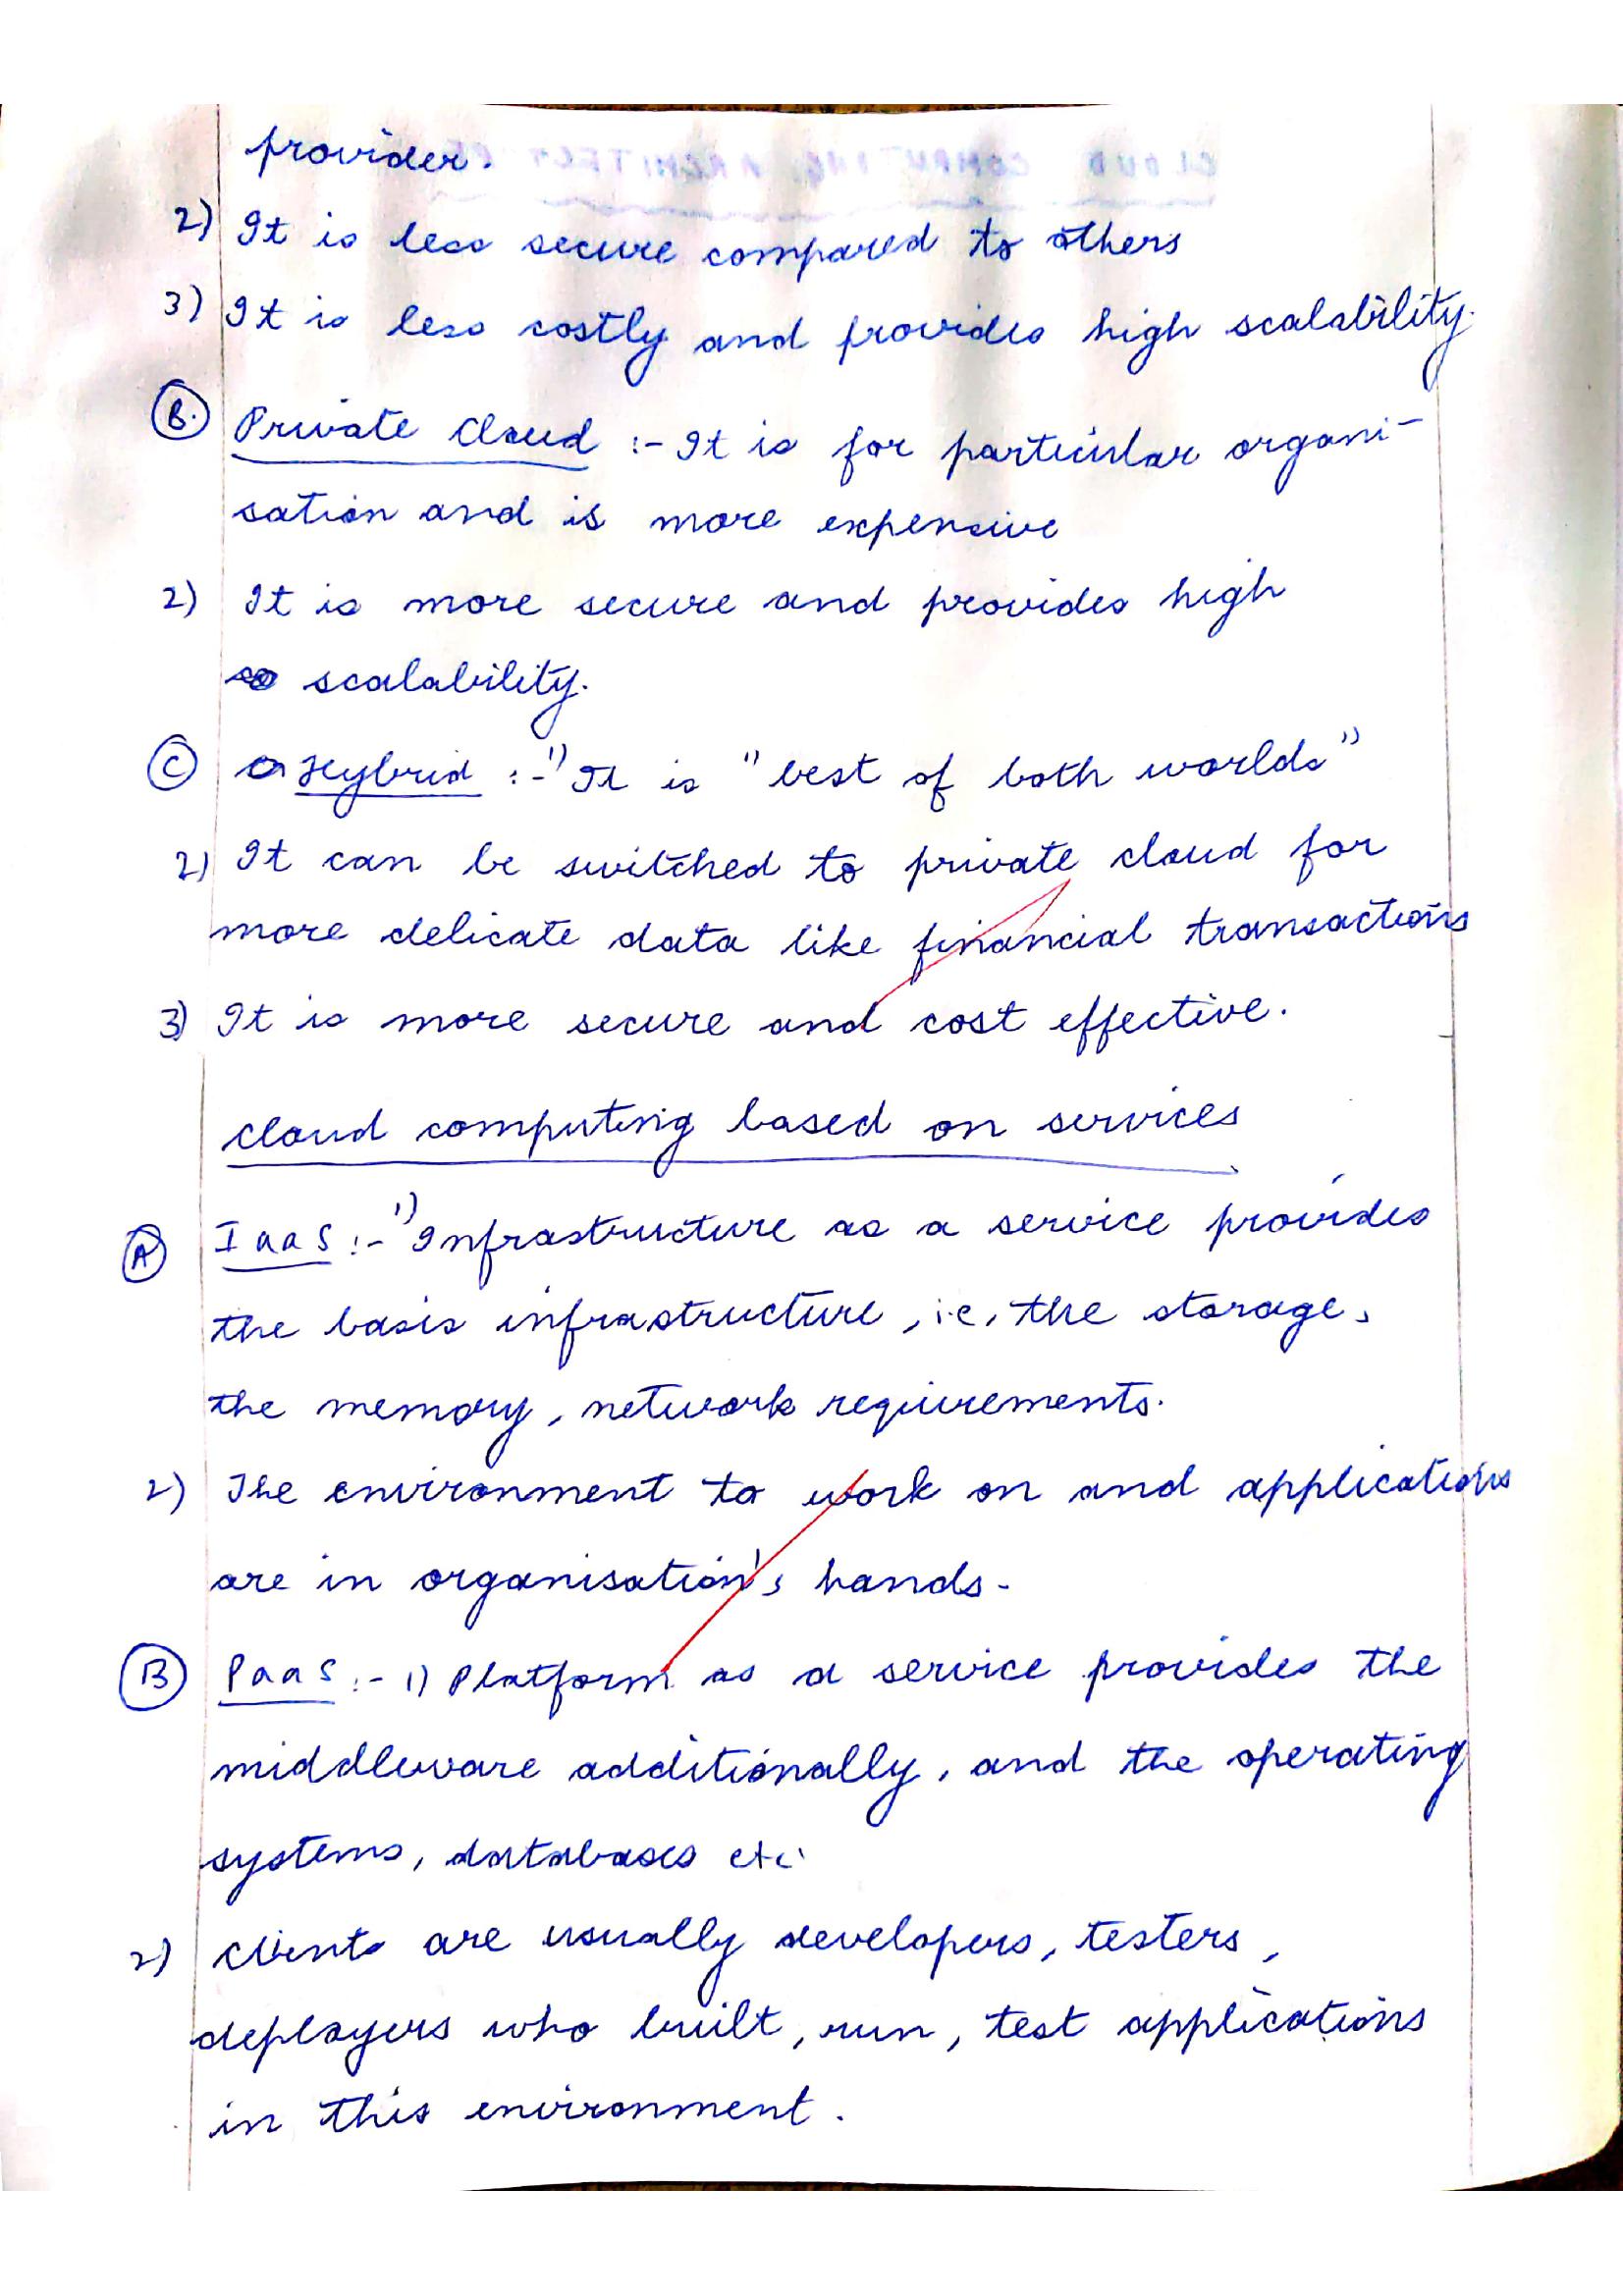 provider.
2) It is less secure compared to others
3) It is less costly and provides high scalability.
B. Private Cloud :- It is for particular organi-
sation and is more expensive
2) It is more secure and provides high
scalability.
C Hybrid :- 1) It is "best of both worlds"
2) It can be switched to private cloud for
more delicate data like financial transactions
3) It is more secure and cost effective.
cloud computing based on services
A IaaS :- 1) Infrastructure as a service provides
the basis infrastructure, i.e, the storage,
the memory, network requirements.
2) The environment to work on and applications
are in organisation's hands.
B PaaS :- 1) Platform as a service provides the
middleware additionally, and the operating
systems, databases etc.
2) Clients are usually developers, testers,
deployers who built, run, test applications
in this environment.